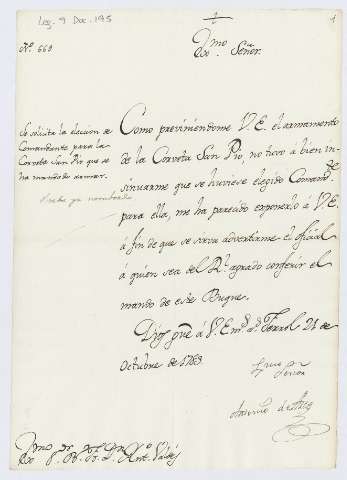 Leg. 9 Doc. 195
1
Nº. 669
Exmo. Señor.
Se solicita la eleccion de
Comandante para la
Corveta San Pio que se
ha mandado armar.
Como previniendome V.E. el armamento
de la Corveta San Pio, no tuvo á bien in-
sinuarme que se huviese elegido Comand.te
para ella, me ha parecido exponerlo á V.E.
á fin de que se sirva advertirme el oficial
á quien sea del Rl. agrado conferir el
mando de este Buque.
Dios gue. á V.E. ms. as. Ferrol 21 de
Octubre de
Exmo. Sr. Bº. Fr. Dn. Antº. Valdés